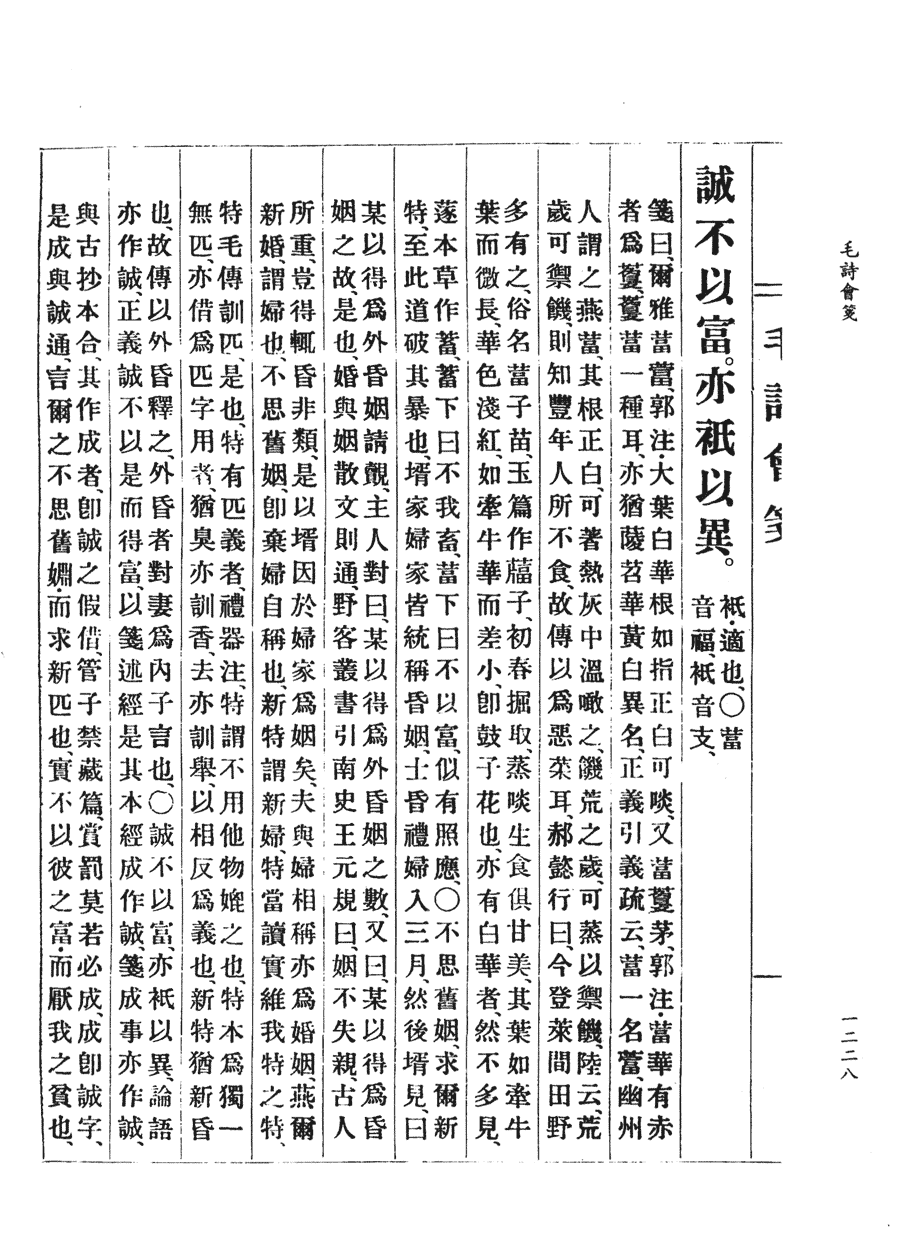 毛詩會箋
一二二八
毛詩會箋
二
誠不以富。亦祇以異。
祇・適也、〇葍
音福、祇音支、
箋曰、爾雅葍䔰、郭注・大葉白華根如指正白可啖、又葍藑茅、郭注・葍華有赤
者爲藑、藑葍一種耳、亦猶蔆苕華黃白異名、正義引義疏云、葍一名䔰、幽州
人謂之燕葍、其根正白、可著熱灰中溫噉之、饑荒之歲、可蒸以禦饑、陸云、荒
歲可禦饑、則知豐年人所不食、故傳以爲惡菜耳、郝懿行曰、今登萊間田野
多有之、俗名葍子苗、玉篇作䕎子、初春掘取、蒸啖生食俱甘美、其葉如牽牛
葉而微長、華色淺紅、如牽牛華而差小、卽鼓子花也、亦有白華者、然不多見、
蓫本草作蓄、蓄下曰不我畜、葍下曰不以富、似有照應、〇不思舊姻、求爾新
特、至此道破其暴也、壻家婦家皆統稱昏姻、士昏禮婦入三月、然後壻見、曰
某以得爲外昏姻請覿、主人對曰、某以得爲外昏姻之數、又曰、某以得爲昏
姻之故、是也、婚與姻散文則通、野客叢書引南史王元規曰、姻不失親、古人
所重、豈得輒昏非類、是以壻因於婦家爲姻矣、夫與婦相稱亦爲婚姻、燕爾
新婚、謂婦也、不思舊姻、卽棄婦自稱也、新特謂新婦、特當讀實維我特之特、
特毛傳訓匹、是也、特有匹義者、禮器注、特謂不用他物媲之也、特本爲獨一
無匹、亦借爲匹字用者、猶臭亦訓香、去亦訓舉、以相反爲義也、新特猶新昏
也、故傳以外昏釋之、外昏者對妻爲內子言也、〇誠不以富、亦祇以異、論語
亦作誠、正義誠不以是而得富、以箋述經是其本經成作誠、箋成事亦作誠、
與古抄本合、其作成者、卽誠之假借、管子禁藏篇、賞罰莫若必成、成卽誠字、
是成與誠通、言爾之不思舊婣・而求新匹也、實不以彼之富・而厭我之貧也、